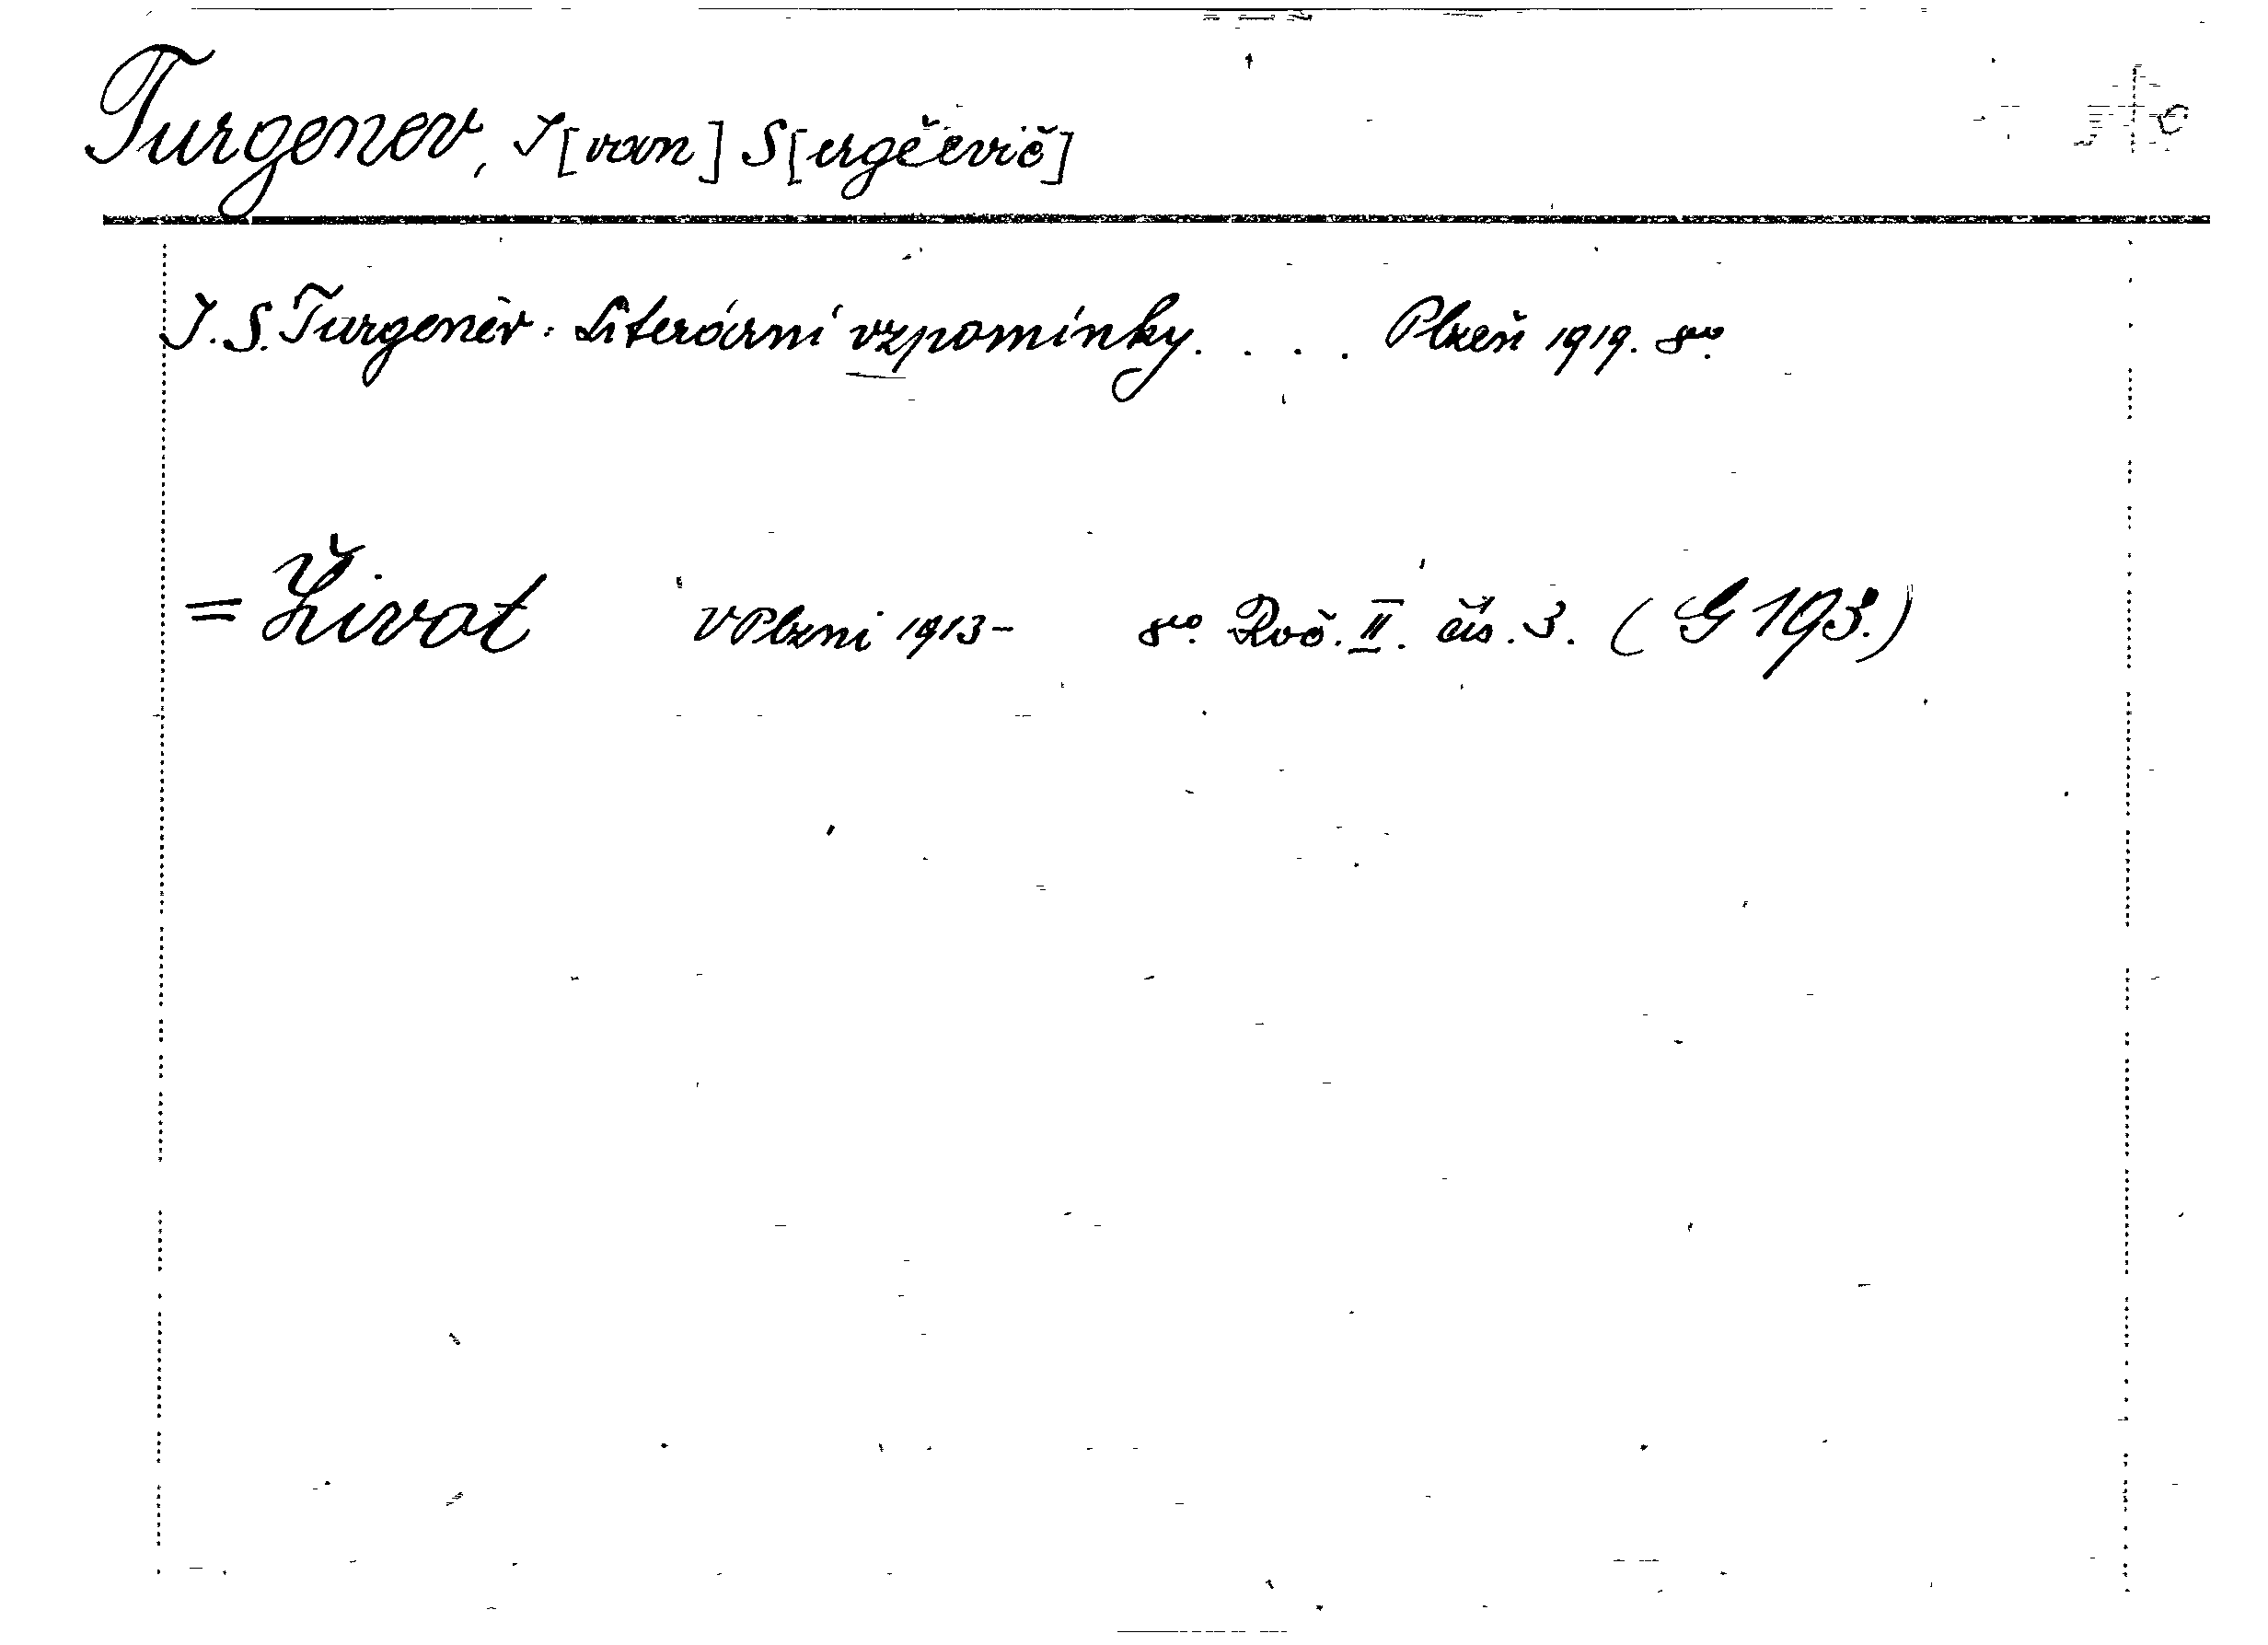 Turgenev, I[van] S[ergěevič]
I. S. Turgeněv: Literární vzpomínky. . . . Plzeň 1919. 8vo.
= Život V Plzni 1913- 8vo. Roč. II. čís. 3. (G 193.)